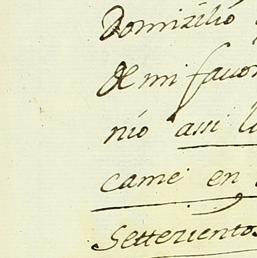 Domizilio
de mi favor
nio assi li
came en
Settecientos